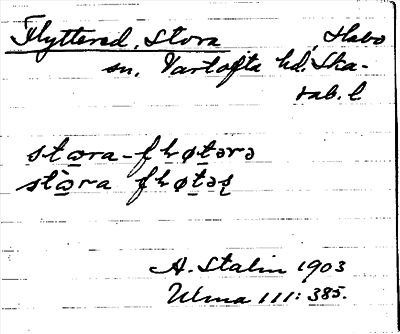 Flyttered, Stora, Habo
sn. Vartofta hd. Ska-
rab. l
stɷra-fꞎøtərə
stɷ̀ra fꞎøtəꞎ
A. Stalin 1903
Ulma 111:385.